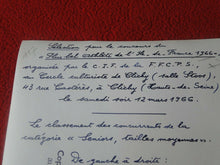 Sélection pour le concours du
"Plus bel athlète de l'Ile-de-France 1966"
organisée par le C.I.F. de la F.F.C.P.S.,
au Cercle culturiste de Clichy (salle Stoss),
43 rue Castérès, à Clichy (Hauts-de-Seine),
le samedi soir 12 mars 1966.
Le classement des concurrents de la
catégorie "Seniors, tailles moyennes".
De gauche à droite:
Cop